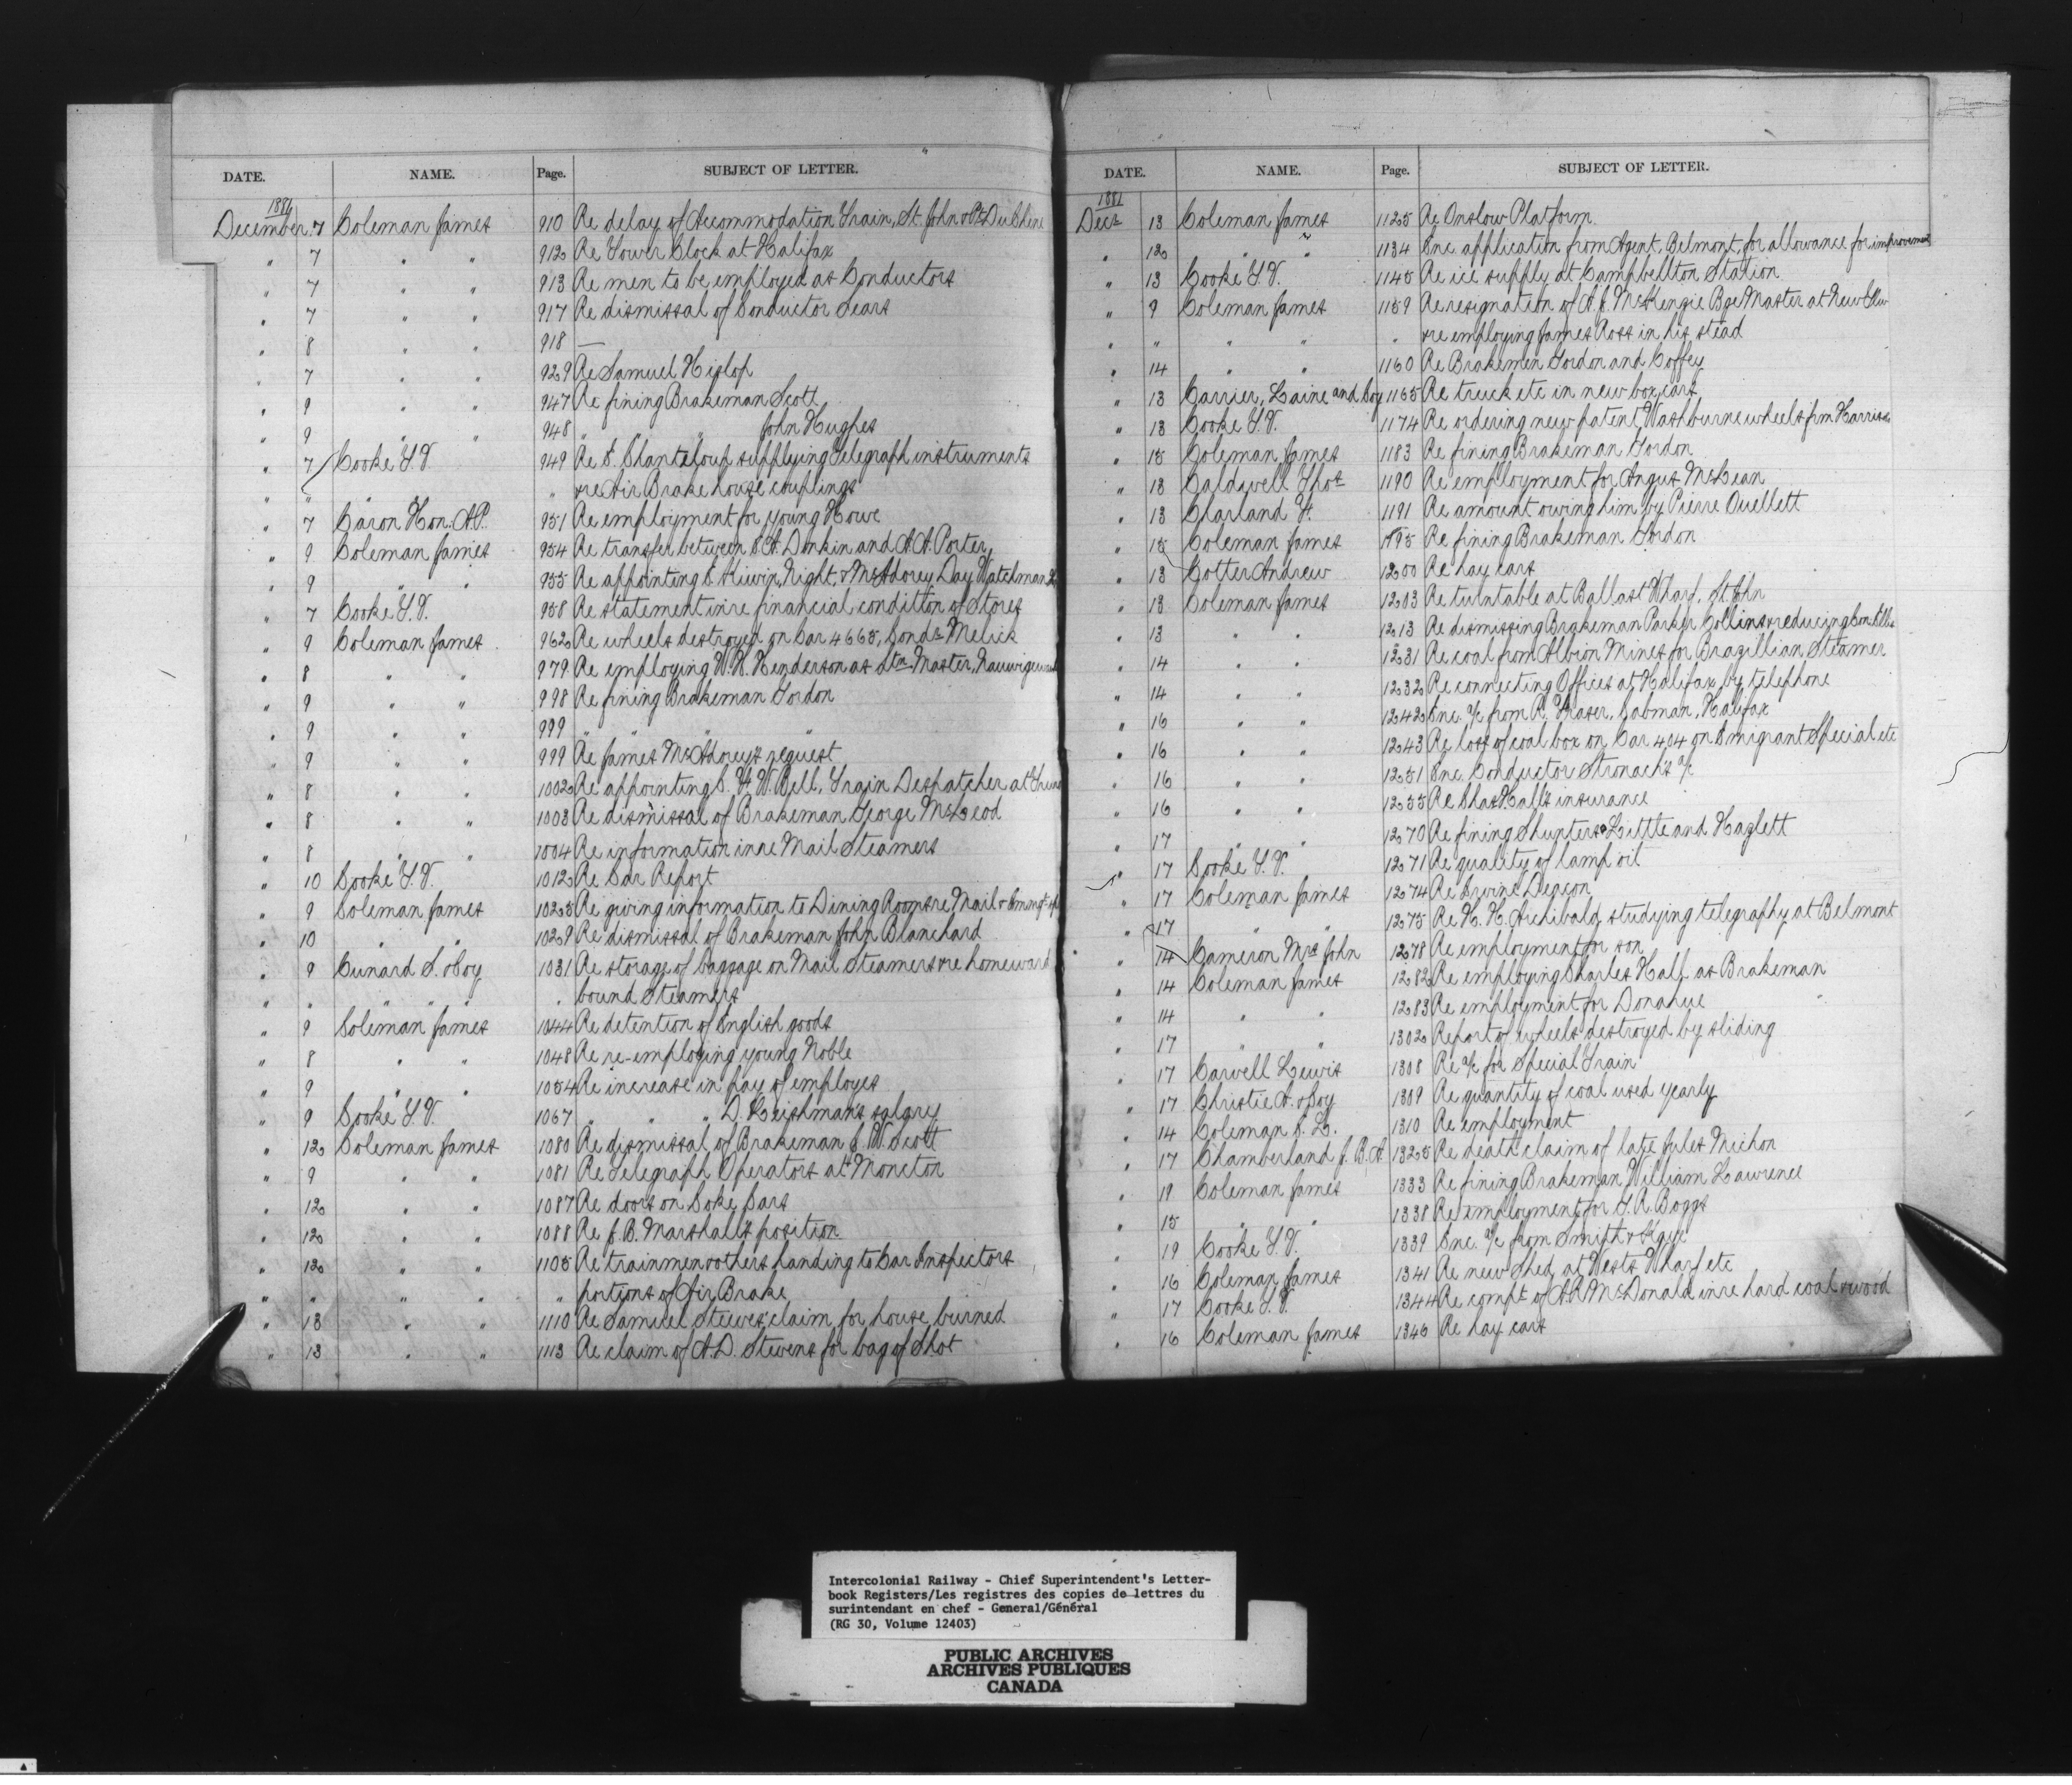 DATE. NAME. Page. SUBJECT OF LETTER.
1881
December 7 Coleman James 910 Re delay of Accommodation Train, St. John & Pt. DuChene
" 7 " " 912 Re Tower Clock at Halifax
" 7 " " 913 Re men to be employed as Conductors
" 7 " " 917 Re dismissal of Conductor Sears
" 8 " " 918 —
" 7 " " 929 Re Samuel Hislop
" 9 " " 947 Re fining Brakeman Scott
" 9 " " 948 " " John Hughes
" 7 Cooke T.V. 949 Re E. Chanteloup supplying Telegraph instruments
" " " & re Air Brake house couplings
" 7 Caron Hon. A.P. 951 Re employment for young Howe
" 9 Coleman James 954 Re transfer between S.A. Donkin and A.A. Porter
" 9 " " 955 Re appointing Night, & McAdorey Day Watchman
" 7 Cooke T.V. 958 Re statement inre financial condition of Stores
" 9 Coleman James 962 Re wheels destroyed on Car 4665, Condr. Melick
" 8 " " 979 Re employing W.H. Henderson as Stn. Master, Nauwigewauk
" 9 " " 998 Re fining Brakeman Gordon
" 9 " " 999 " " "
" 9 " " 999 Re James McAdorey's request
" 8 " " 1002 Re appointing C.H.W. Bell, Train Despatcher at Truro
" 8 " " 1003 Re dismissal of Brakeman George McLeod
" 8 " " 1004 Re information inre Mail Steamers
" 10 Cooke T.V. 1012 Re Car Report
" 9 Coleman James 1025 Re giving information to Dining Rooms re Mail & Emingt.
" 10 " " 1029 Re dismissal of Brakeman John Blanchard
" 9 Cunard S. & Coy 1031 Re storage of baggage on Mail Steamers & re homeward
" " " " " " bound Steamers
" 9 Coleman James 1044 Re detention of English goods
" 8 " " 1048 Re re-employing young Noble
" 9 " " 1054 Re increase in pay of employes
" 9 Cooke T.V. 1067 " " " D. Leishman's salary
" 12 Coleman James 1080 Re dismissal of Brakeman J.W. Scott
" 9 " " 1081 Re Telegraph Operators at Moncton
" 12 " " 1087 Re doors on Coke Cars
" 12 " " 1088 Re J.B. Marshall's position
" 12 " " 1105 Re trainmen & others handing to Car Inspectors
" " " " " portions of Air Brake
" 13 " " 1110 Re Samuel Steeves' claim for house burned
" 13 " " 1113 Re claim of A.D. Stevens for bag of Shot
DATE. NAME. Page. SUBJECT OF LETTER.
1881
Decr. 13 Coleman James 1125 Re Onslow Platform
" 12 " " 1134 Enc. application from Agent, Belmont, for allowance for improvement
" 13 Cooke T.V. 1145 Re ice supply at Campbellton Station
" 9 Coleman James 1159 Re resignation of A.J. McKenzie Bge Master at New
" " " " " & re employing James Ross in his stead
" 14 " " 1160 Re Brakemen Gordon and Coffey
" 13 Carrier, Laine and Coy 1165 Re truck etc in new box cars
" 13 Cooke T.V. 1174 Re ordering new patent Washburne wheels frm Harris
" 15 Coleman James 1183 Re fining Brakeman Gordon
" 13 Caldwell Thos. 1190 Re employment for Angus McLean
" 13 Charland H. 1191 Re amount owing him by Pierre Ouellett
" 15 Coleman James 1195 Re fining Brakeman Gordon
" 13 Cotter Andrew 1200 Re hay cars
" 13 Coleman James 1203 Re turntable at Ballast Wharf, St. John
" 13 " " 1213 Re dismissing Brakeman Parker Collins & reducing
" 14 " " 1231 Re coal from Albion Mines for Brazillian Steamer
" 14 " " 1232 Re connecting Offices at Halifax by telephone
" 16 " " 1242 Enc. a/c from R. Fraser, Cabman, Halifax
" 16 " " 1243 Re loss of coal box on Car 404 on Emigrant Special etc
" 16 " " 1251 Enc. Conductor Stronach's a/c
" 16 " " 1255 Re Chas Hall's insurance
" 17 " " 1270 Re fining Shunters Little and Hazlett
" 17 Cooke T.V. 1271 Re quality of lamp oil
" 17 Coleman James 1274 Re Irvine Deacon
" 17 " " 1275 Re H.H. Archibald studying telegraphy at Belmont
" 14 Cameron Mrs. John 1278 Re employment for son
" 14 Coleman James 1282 Re employing Charles Hall as Brakeman
" 14 " " 1283 Re employment for Donahue
" 17 " " 1302 Report of wheels destroyed by sliding
" 17 Carvell Lewis 1308 Re a/c for Special Train
" 17 Christie A. & Coy 1309 Re quantity of coal used yearly
" 14 Coleman J.L. 1310 Re employment
" 17 Chamberland J.B.A. 1325 Re death claim of late Jules Michon
" 19 Coleman James 1333 Re fining Brakeman William Lawrence
" 15 " " 1338 Re employment for T.R. Boggs
" 19 Cooke T.V. 1339 Enc. a/c from Smith & Kaye
" 16 Coleman James 1341 Re new Shed at Wests Wharf etc
" 17 Cooke T.V. 1344 Re compt. of A.R. McDonald inre hard coal & wood
" 16 Coleman James 1346 Re hay cars
Intercolonial Railway - Chief Superintendent's Letter-
book Registers/Les registres des copies de lettres du
surintendant en chef - General/Général
(RG 30, Volume 12403)
PUBLIC ARCHIVES
ARCHIVES PUBLIQUES
CANADA